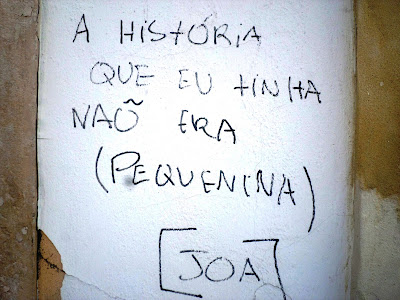 A HISTÓRIA
QUE EU TINHA
NAÕ ERA
(PEQUENINA)
[JOA]